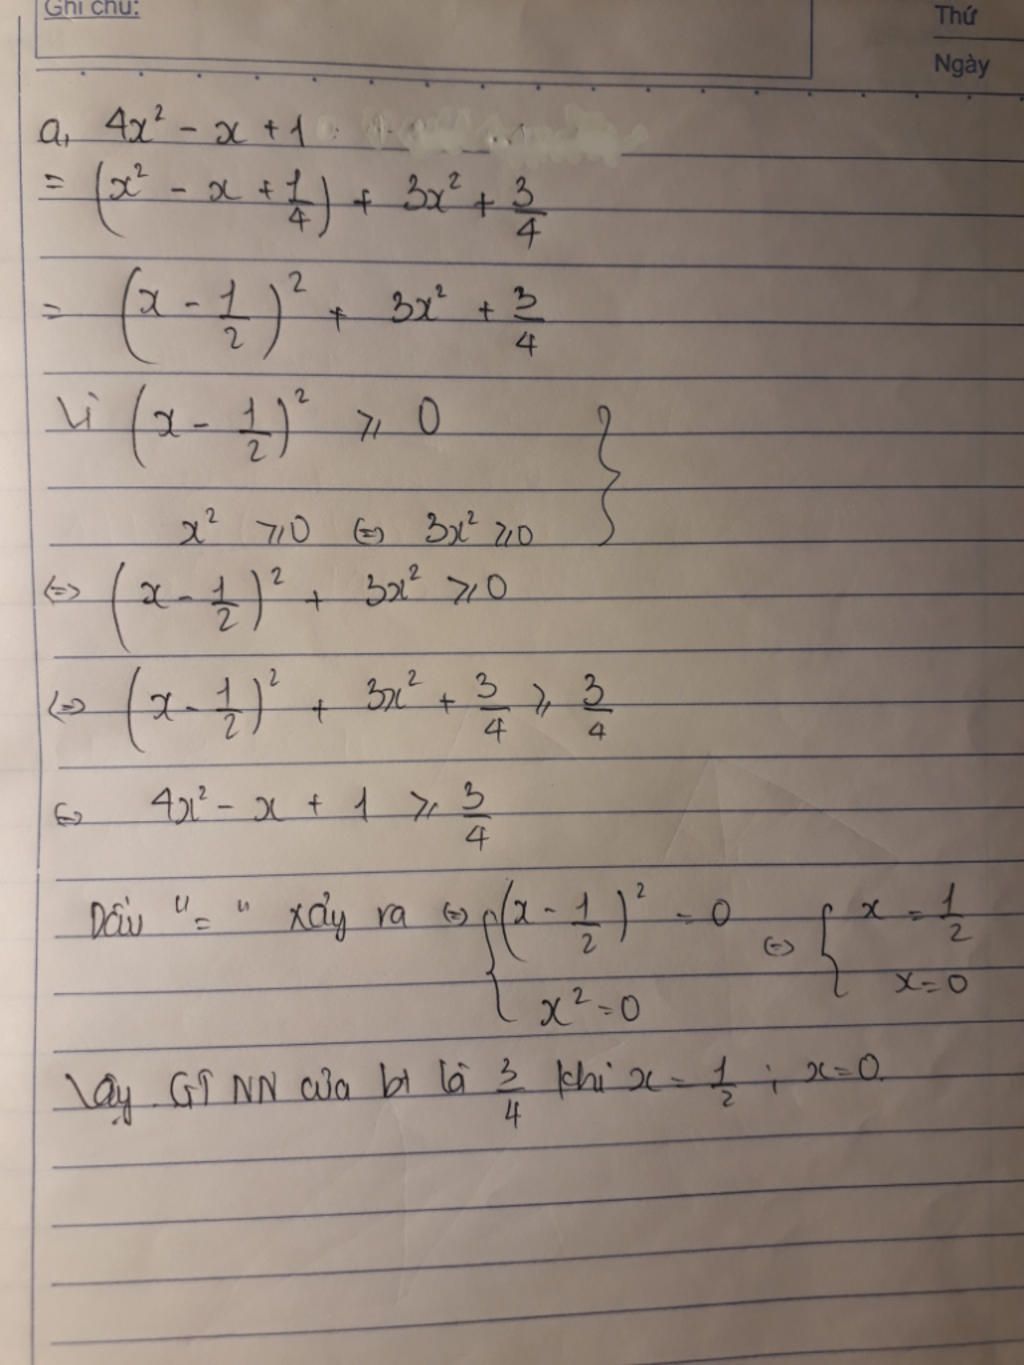 Ghi chú:
Thứ
Ngày
a, 4x² - x + 1
= (x² - x + 1/4) + 3x² + 3/4
= (x - 1/2)² + 3x² + 3/4
Vì (x - 1/2)² ≥ 0
x² ≥ 0 ⇔ 3x² ≥ 0 }
⇔ (x - 1/2)² + 3x² ≥ 0
⇔ (x - 1/2)² + 3x² + 3/4 ≥ 3/4
⇔ 4x² - x + 1 ≥ 3/4
Dấu "=" xảy ra ⇔ { (x - 1/2)² = 0 ⇔ { x = 1/2
x² = 0 x = 0
Vậy GTNN của bt là 3/4 khi x = 1/2 ; x = 0.